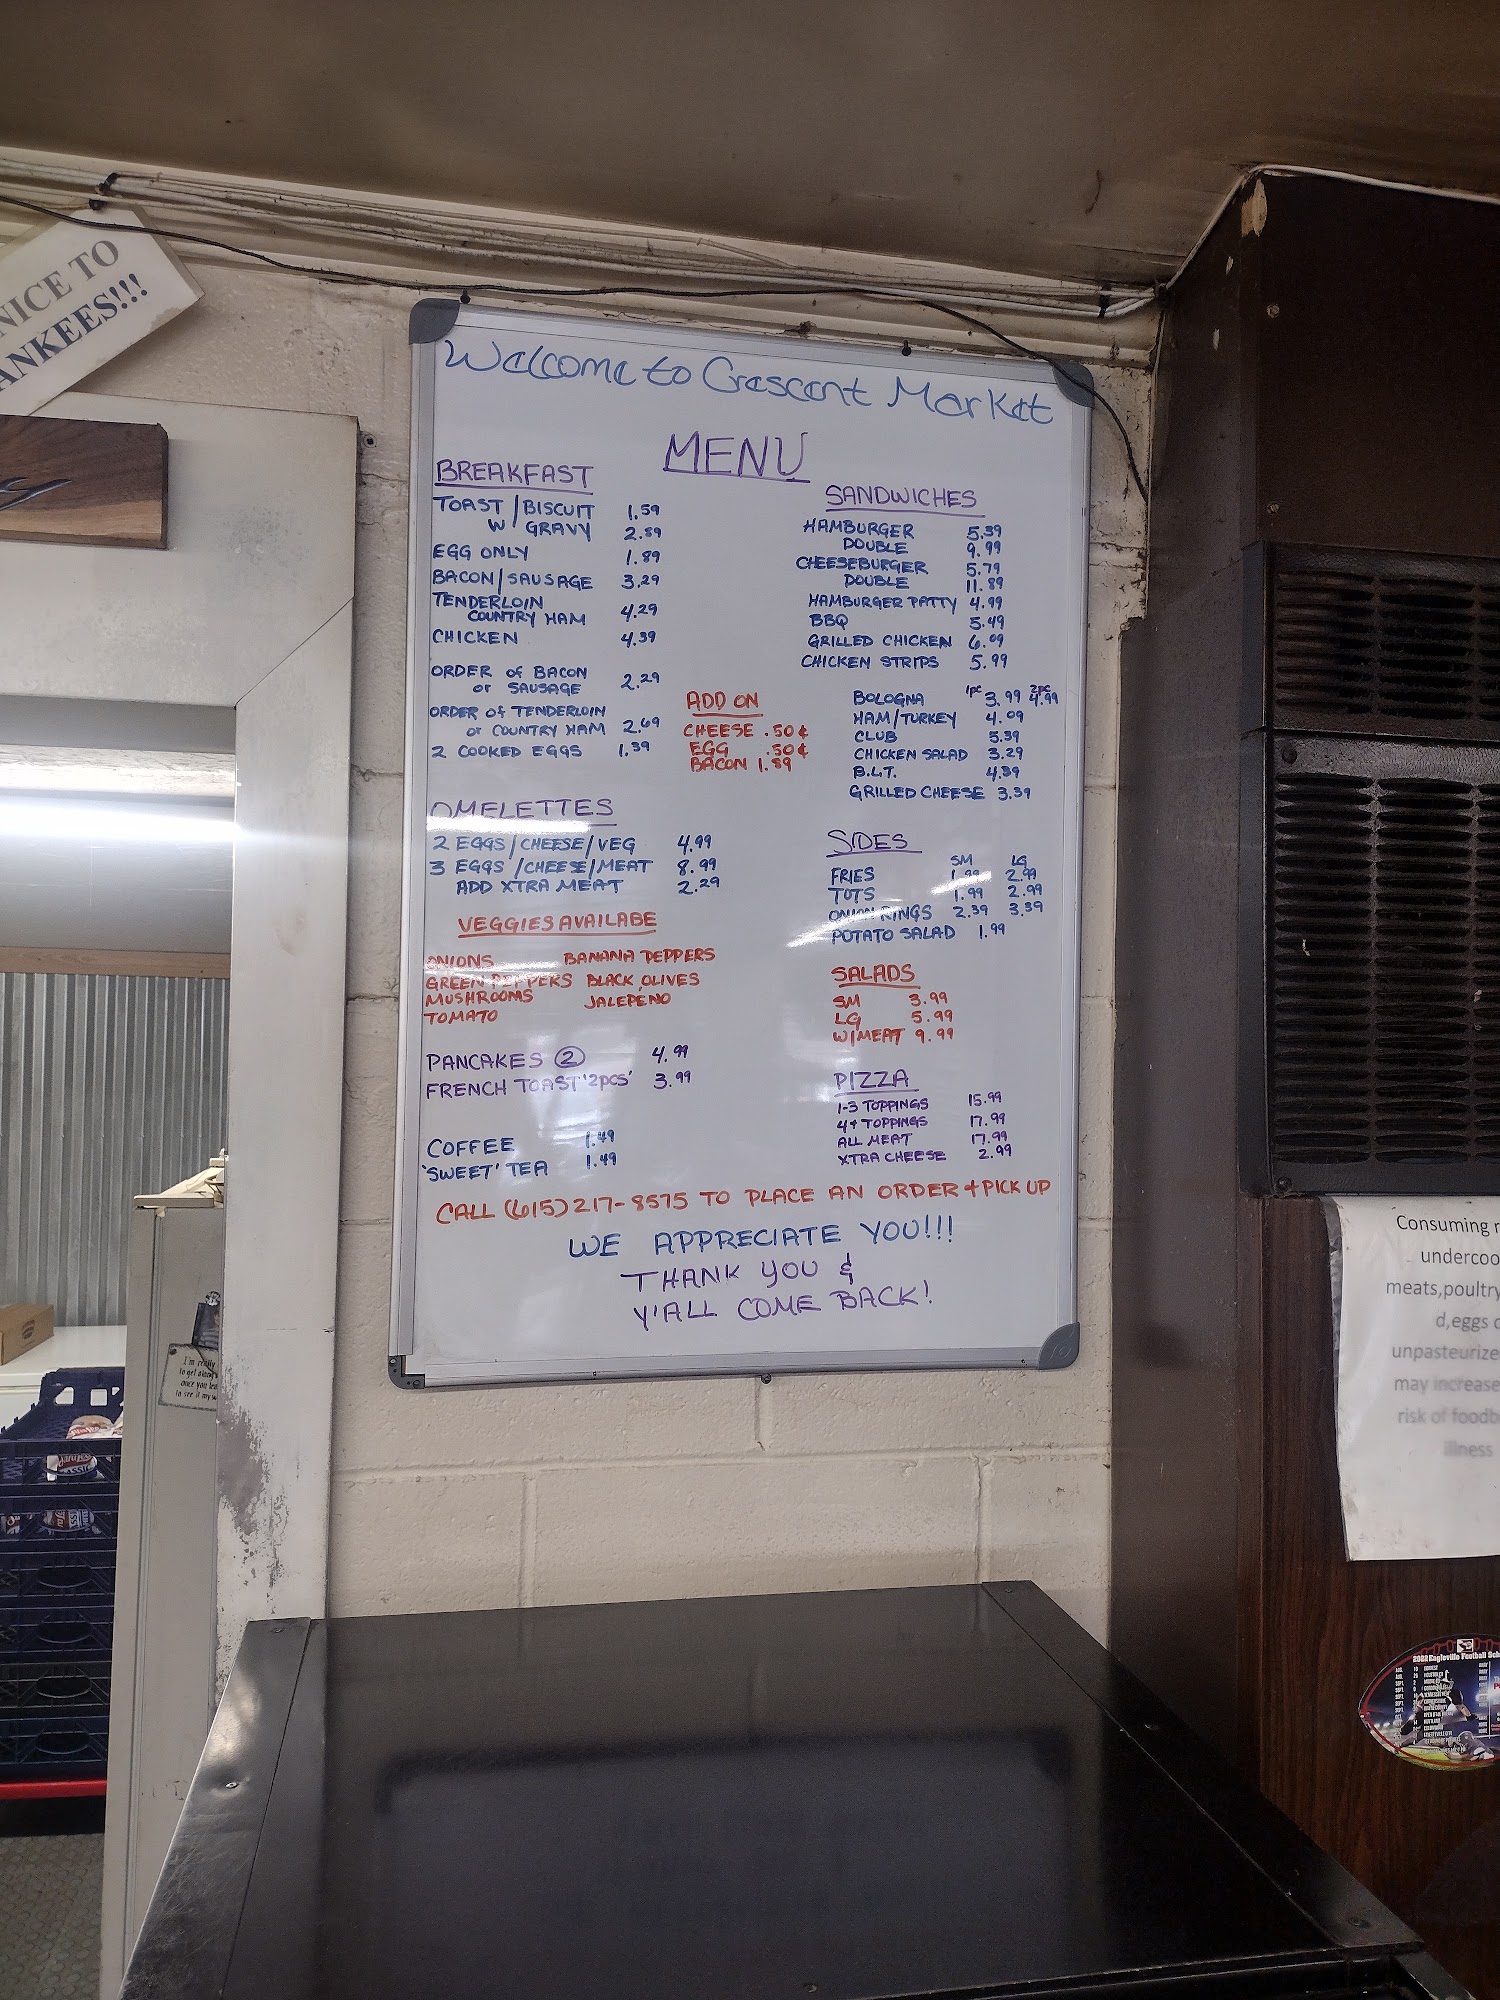 NICE TO
ANKEES!!!
Welcome to Crescent Market
MENU
BREAKFAST
TOAST / BISCUIT 1.59
W/ GRAVY 2.89
EGG ONLY 1.89
BACON/SAUSAGE 3.29
TENDERLOIN
COUNTRY HAM 4.29
CHICKEN 4.39
ORDER of BACON
or SAUSAGE 2.29
ORDER of TENDERLOIN
or COUNTRY HAM 2.69
2 COOKED EGGS 1.39
ADD ON
CHEESE .50¢
EGG .50¢
BACON 1.89
OMELETTES
2 EGGS/CHEESE/VEG 4.99
3 EGGS/CHEESE/MEAT 8.99
ADD XTRA MEAT 2.29
VEGGIES AVAILABE
ONIONS BANANA PEPPERS
GREEN PEPPERS BLACK OLIVES
MUSHROOMS JALEPENO
TOMATO
PANCAKES 2 4.99
FRENCH TOAST '2PCS' 3.99
COFFEE 1.49
'SWEET' TEA 1.49
SANDWICHES
HAMBURGER 5.39
DOUBLE 9.99
CHEESEBURGER 5.79
DOUBLE 11.89
HAMBURGER PATTY 4.99
BBQ 5.49
GRILLED CHICKEN 6.09
CHICKEN STRIPS 5.99
1pc 2pc
BOLOGNA 3.99 4.99
HAM/TURKEY 4.09
CLUB 5.39
CHICKEN SALAD 3.29
B.L.T. 4.39
GRILLED CHEESE 3.39
SIDES
SM LG
FRIES 1.99 2.99
TOTS 1.99 2.99
ONION RINGS 2.39 3.39
POTATO SALAD 1.99
SALADS
SM 3.99
LG 5.99
W/MEAT 9.99
PIZZA
1-3 TOPPINGS 15.99
4+ TOPPINGS 17.99
ALL MEAT 17.99
XTRA CHEESE 2.99
CALL (615) 217-8575 TO PLACE AN ORDER + PICK UP
WE APPRECIATE YOU!!!
THANK YOU &
Y'ALL COME BACK!
Consuming r
undercoo
meats,poultry
d,eggs
unpasteurize
may increase
risk of foodb
illness
I'm really
to get along
once you lea
to see it my w
2022 Eagleville Football Sch